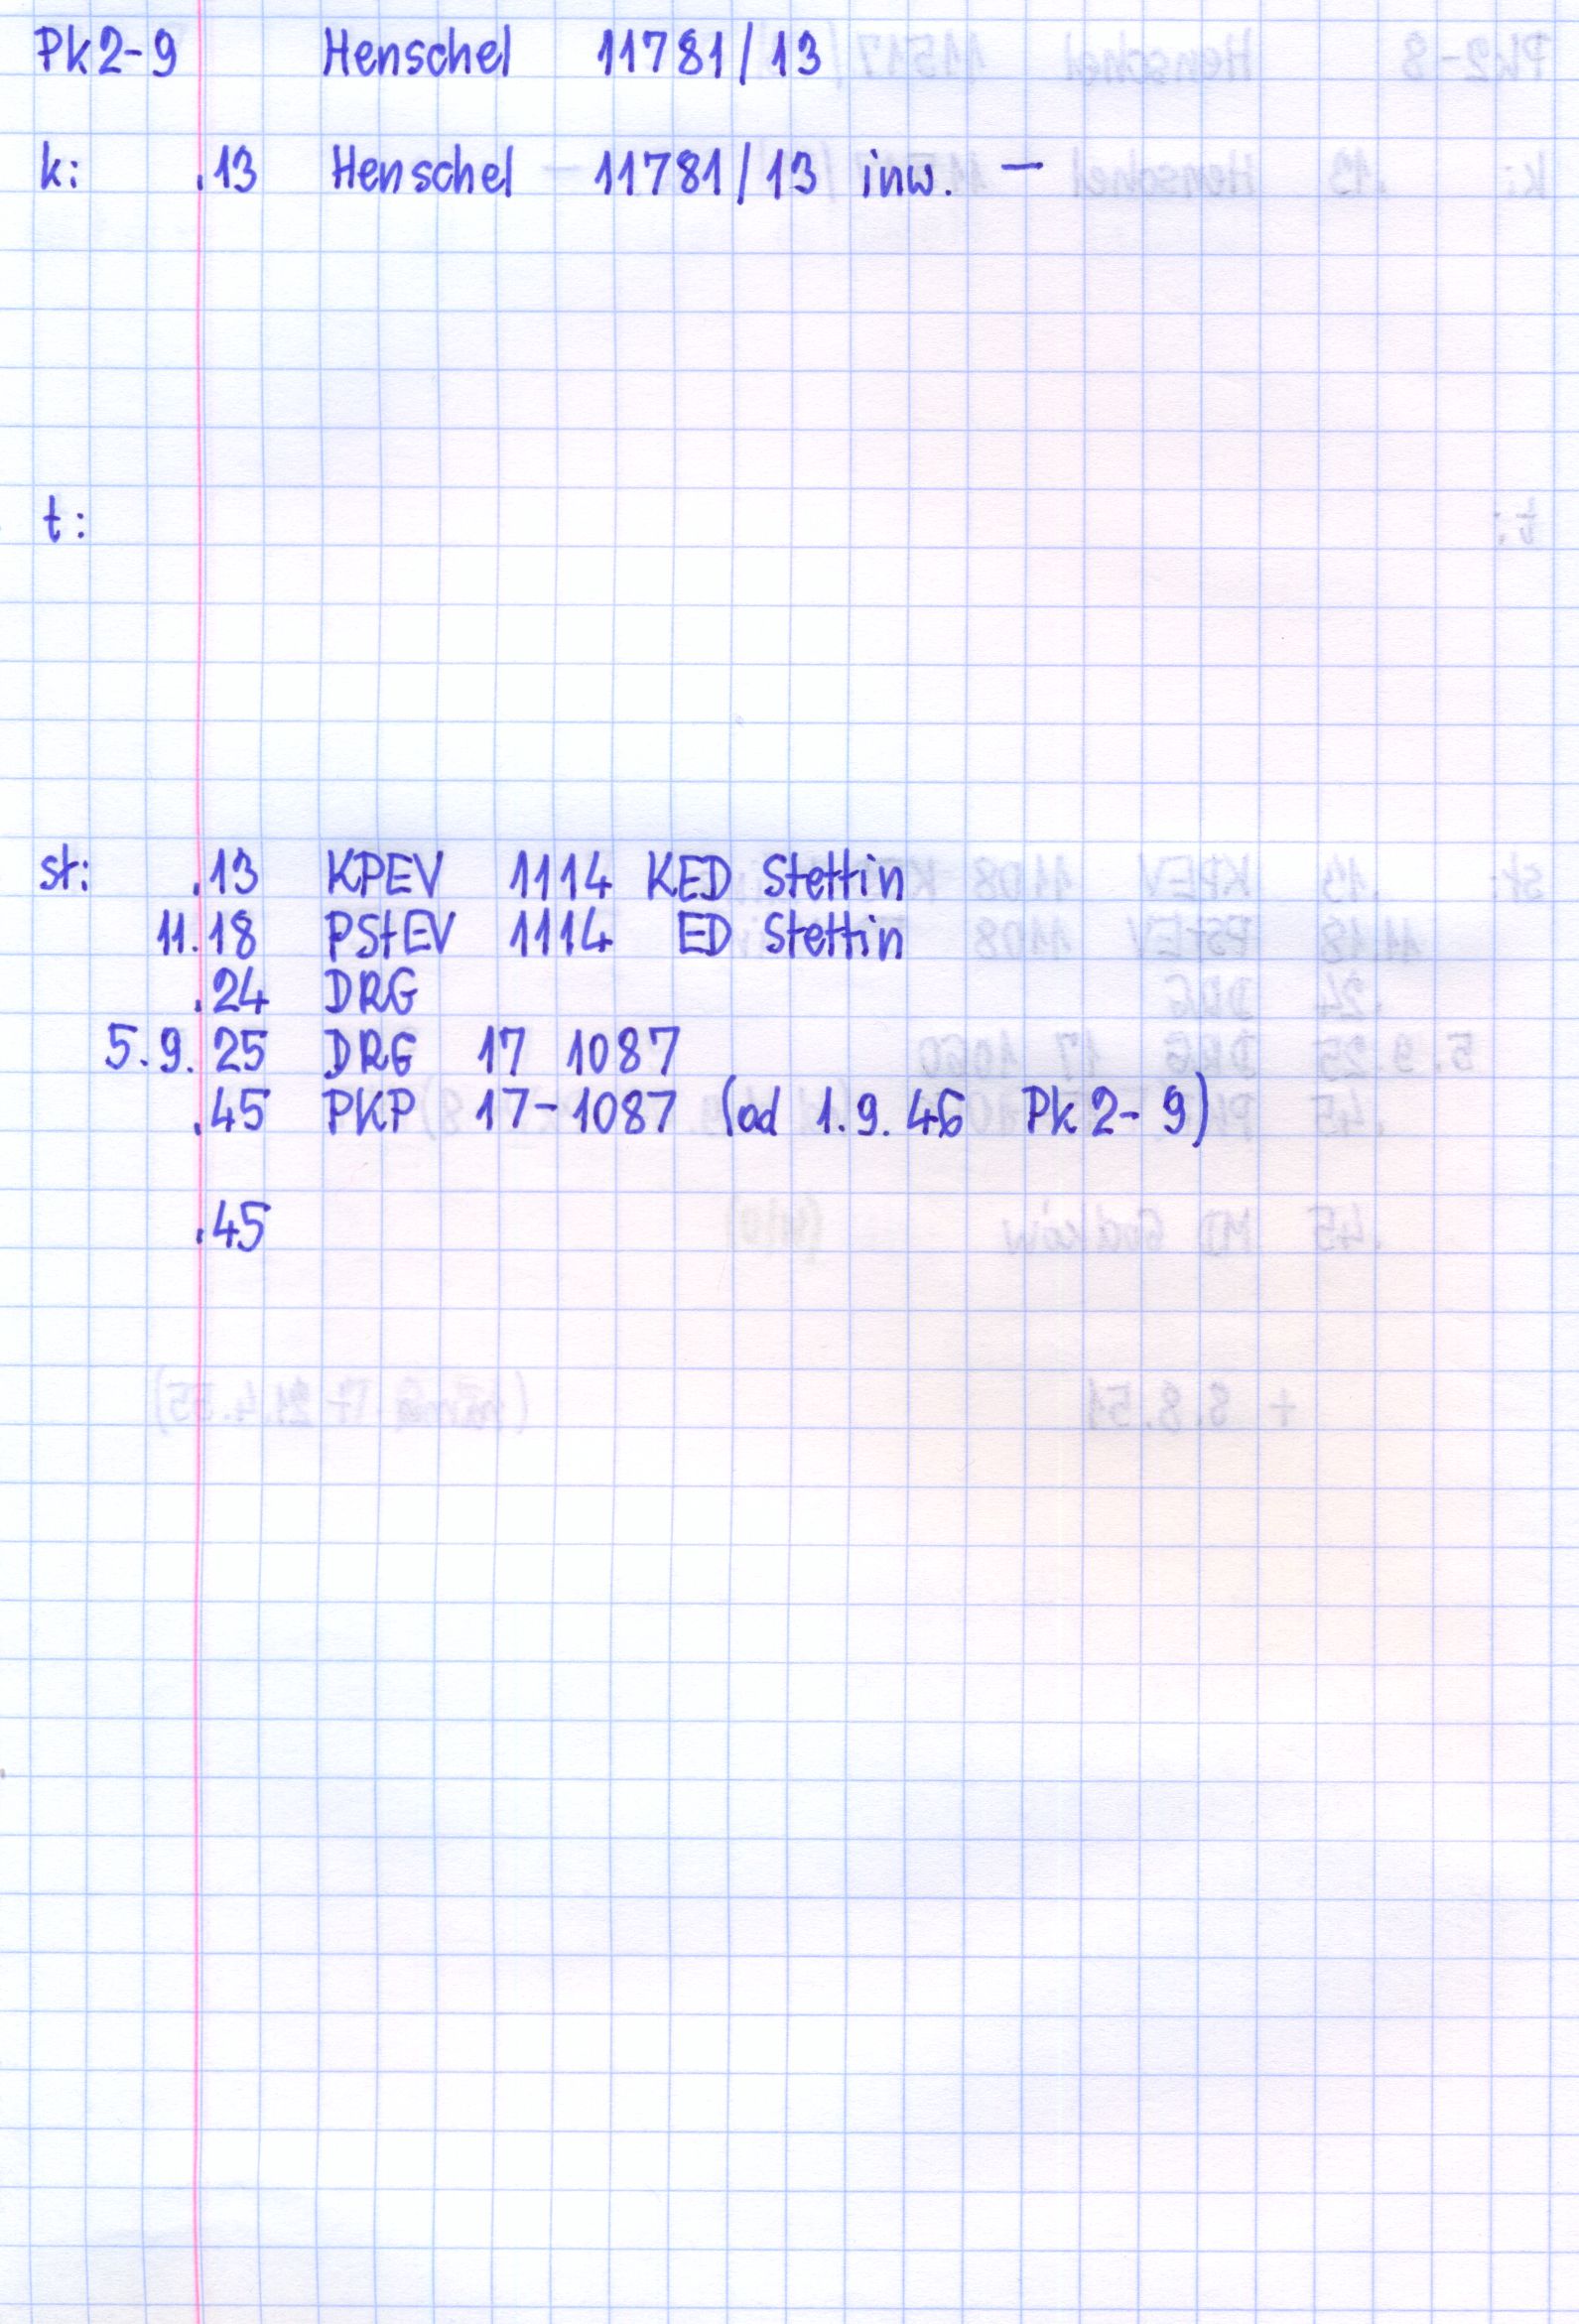 Pk2-9 Henschel 11781/13
k: .13 Henschel 11781/13 inw. —
t:
st: .13 KPEV 1114 KED Stettin
11.18 PStEV 1114 ED Stettin
.24 DRG
5.9.25 DRG 17 1087
.45 PKP 17-1087 (od 1.9.46 Pk2-9)
.45